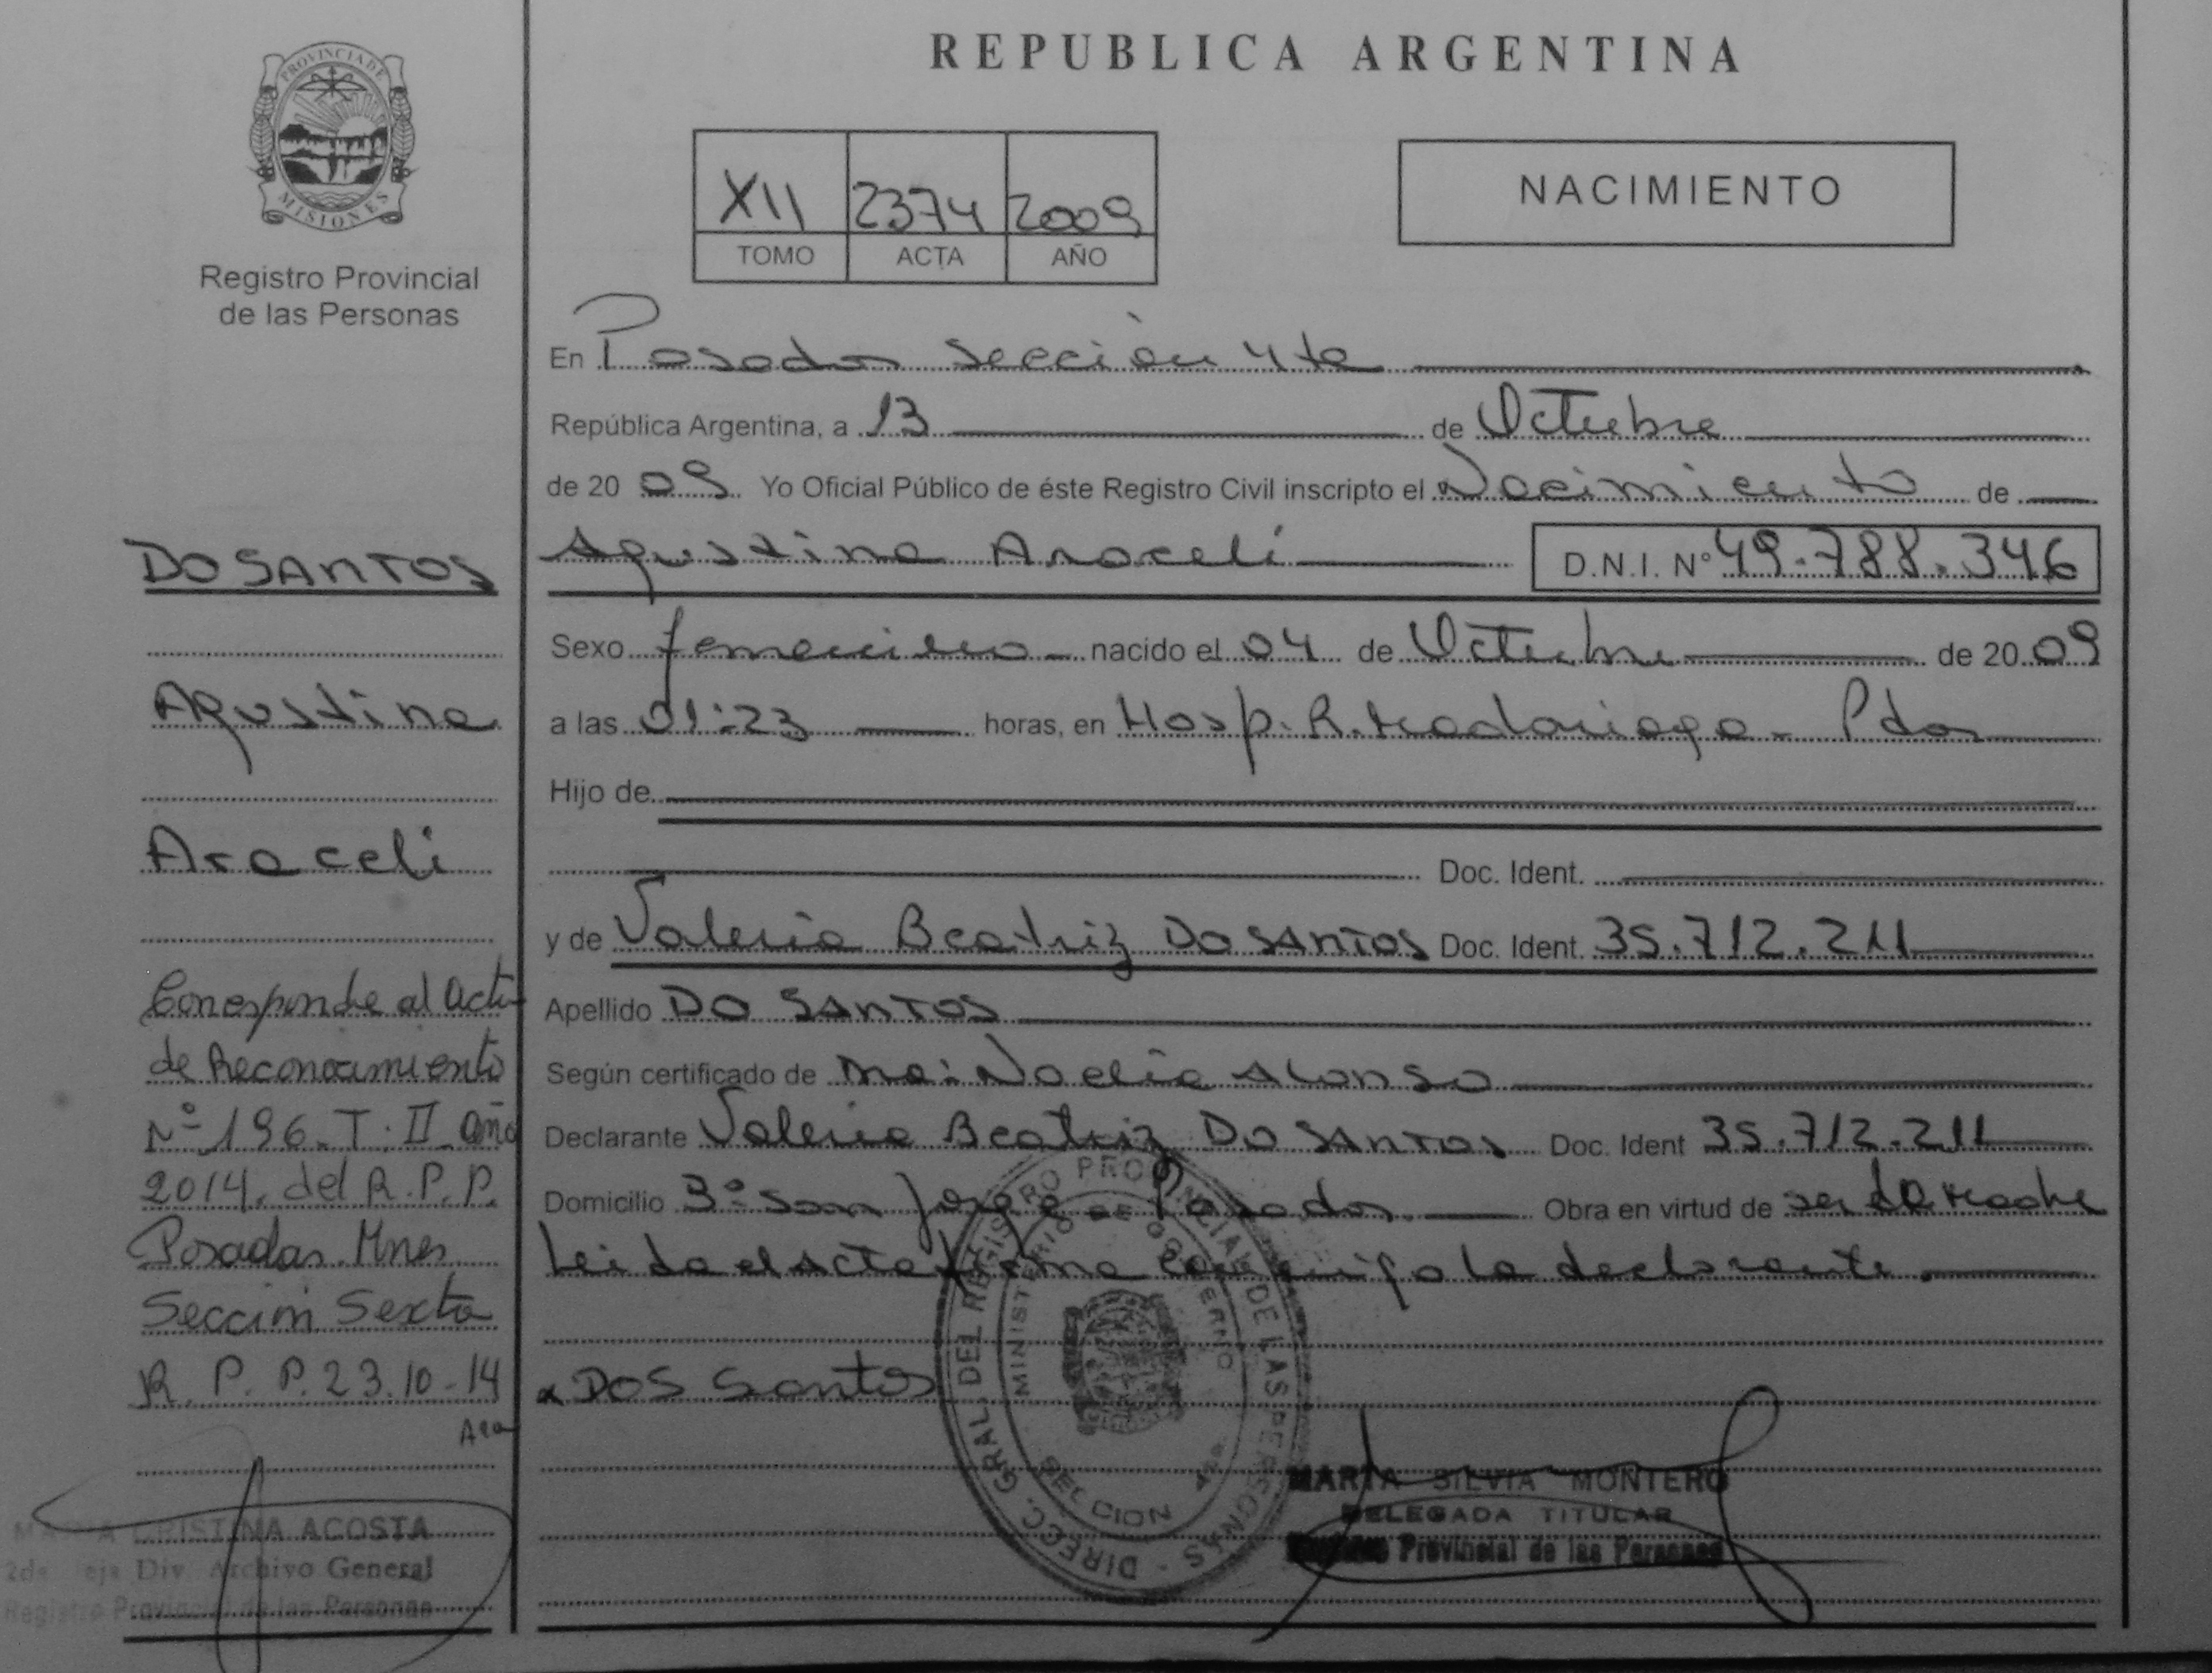 PROVINCIA DE
MISIONES
Registro Provincial
de las Personas
DO SANTOS
Agustina
Araceli
Corresponde al Acta
de Reconocimiento
Nº 196. T. II año
2014. del R.P.P.
Posadas. Mnes.
Sección Sexta
R. P. P. 23.10-14
CRISTINA ACOSTA
Div Archivo General
Registro Provincial de las Personas
REPUBLICA ARGENTINA
XII 2374 2009
TOMO ACTA AÑO
NACIMIENTO
En Posadas Sección 4ta
República Argentina, a 13 de Octubre
de 20 09 Yo Oficial Público de éste Registro Civil inscripto el Nacimiento de
Agustina Araceli D.N.I. Nº 49.788.346
Sexo femenino nacido el 04 de Octubre de 20 09
a las 01:23 horas, en Hosp. R. Madariaga - Pdas
Hijo de
Doc. Ident.
y de Valeria Beatriz DO SANTOS Doc. Ident. 35.712.211
Apellido DO SANTOS
Según certificado de Ma: Noelia Alonso
Declarante Valeria Beatriz DO SANTOS Doc. Ident 35.712.211
Domicilio Bº San Jorge - Posadas. Obra en virtud de ser la madre
Leida el acta firma conmigo la declarante.
DOS Santos
DIRECC. GRAL. DEL REGISTRO PROVINCIAL DE LAS PERSONAS
MINISTERIO DE GOBIERNO
SECCION 4ta
MARTA SILVIA MONTERO
DELEGADA TITULAR
Registro Provincial de las Personas